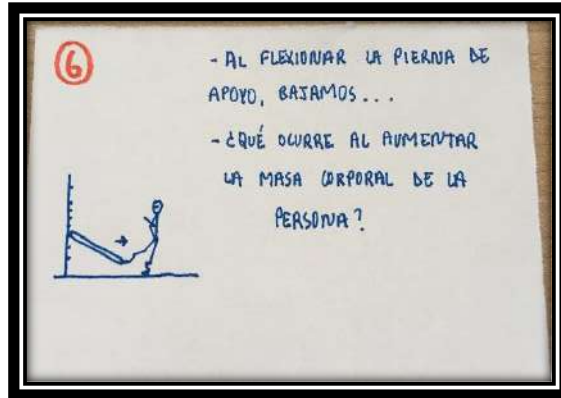 6
- AL FLEXIONAR LA PIERNA DE
APOYO, BAJAMOS...
- ¿QUÉ OCURRE AL AUMENTAR
LA MASA CORPORAL DE LA
PERSONA?